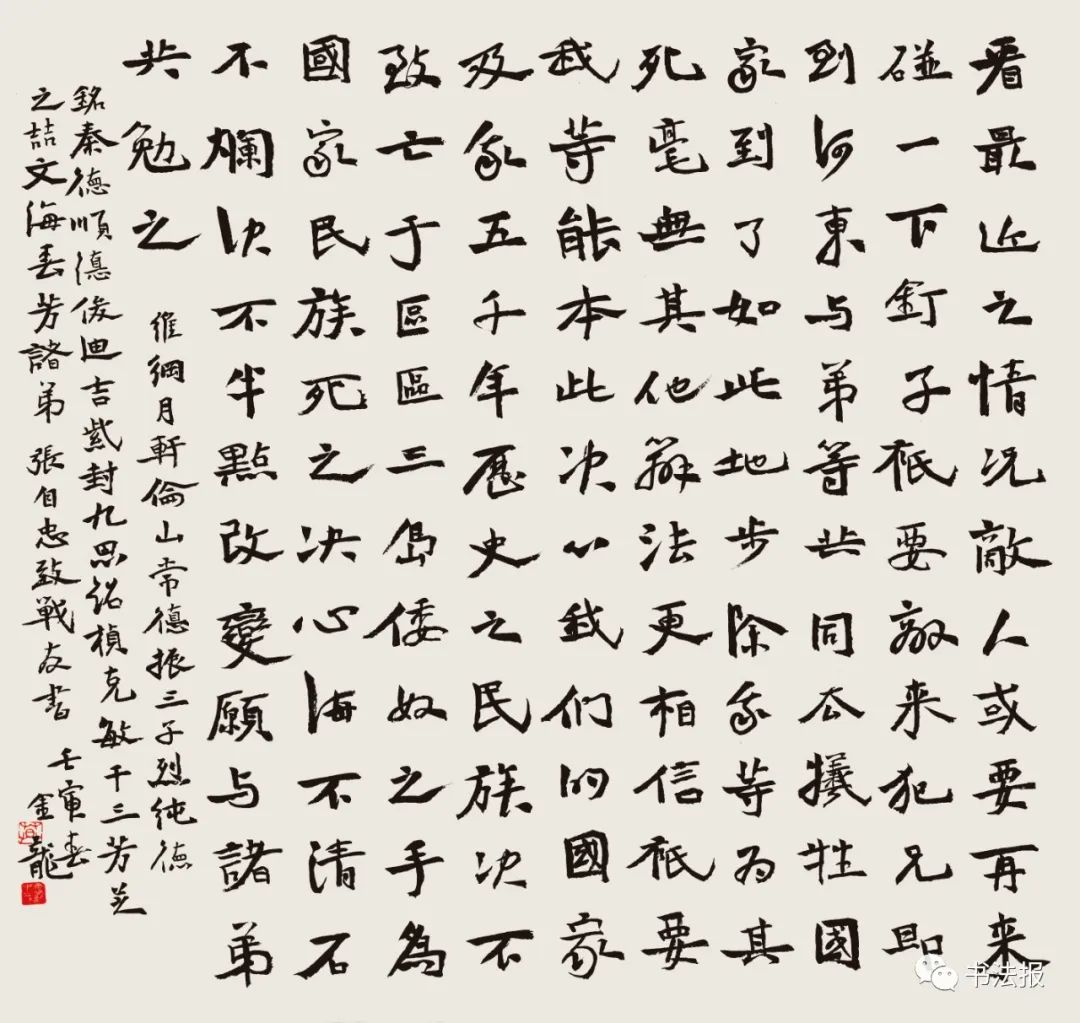 看最近之情况敵人或要再来
碰一下釘子祇要敵来犯兄即
到河東与弟等共同去犧牲國
家到了如此地步除我等为其
死毫無其他辦法更相信祇要
我等能本此决心我们的國家
及我五千年歷史之民族决不
致亡于區區三島倭奴之手為
國家民族死之决心海不清石
不爛决不半點改變願与諸弟
共勉之
維綱月軒倫山常德振三子烈純德
銘秦德順德俊迪吉紫封九思紹楨克敏千三芳芝
之喆文海春芳諸弟 張自忠致戰友書 壬寅春
金龍
书法报